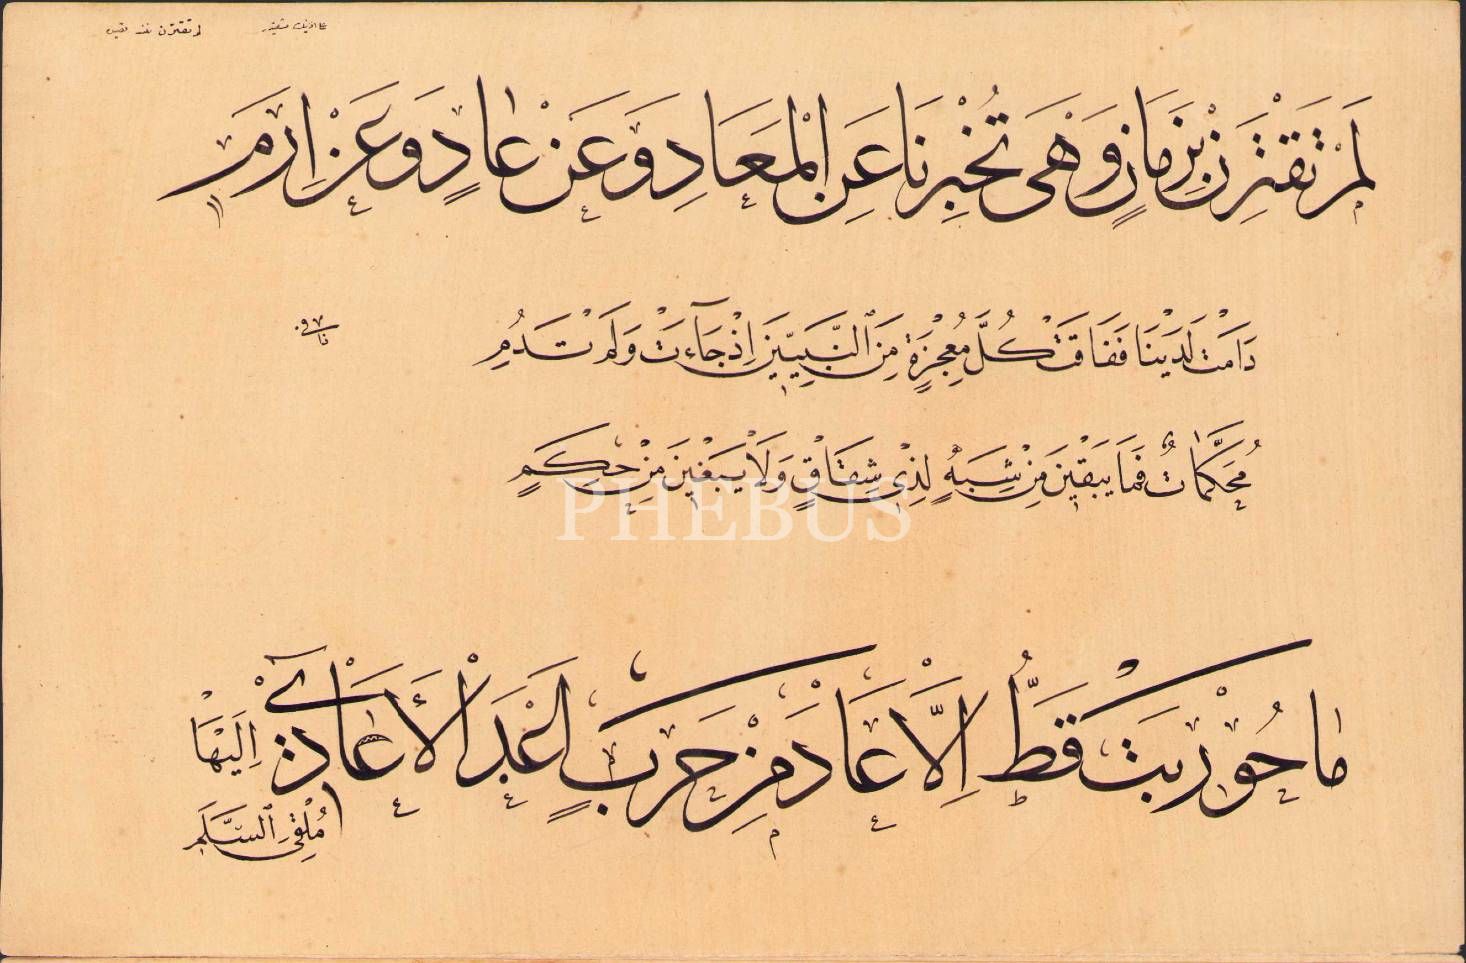 لَمْ تَقْتَرِنْ بِزَمَانٍ وَهْيَ تُخْبِرُنَا عَنِ الْمَعَادِ وَعَنْ عَادٍ وَعَنْ اِرَمَ
دَامَتْ لَدَيْنَا فَفَاقَتْ كُلَّ مُعْجِزَةٍ مِنَ النَّبِيِّينَ اِذْ جَآءَتْ وَلَمْ تَدُمِ
مُحَكَّمَاتٌ فَمَا يبْقِينَ مِنْ شِبَهٍ لِذِى شِقَاقٍ وَلَا يَبْغِينَ مِنْ حِكَمٍ
PHEBUS
مَا حُورِبَتْ قَطُّ اِلَّا عَادَ مِنْ حَرَبٍ اَعْدَ الْأَعَادِى اِلَيْهَا
مُلْقِىَ السَّلَمِ